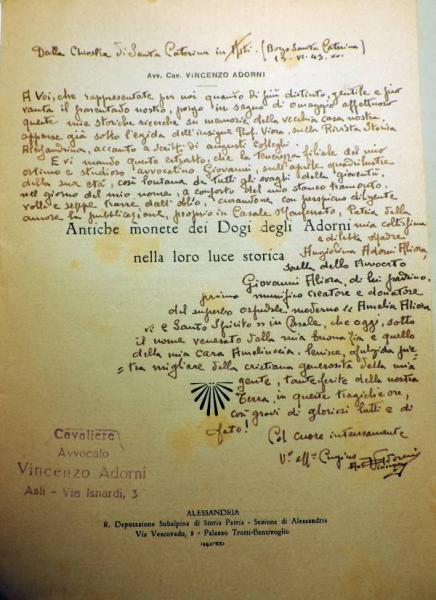 Dalla Chiostra di Santa Caterina in Asti. (Borgo Santa Caterina)
13-VI-43.
Avv. Cav. VINCENZO ADORNI
A Voi, che rappresentate per noi quanto di più distinto, gentile e pio
vanta il parentado nostro, porgo in segno di omaggio affettuoso
queste mie storiche ricerche su memorie della vecchia casa nostra,
apparse già sotto l'egida dell'insigne Prof. Viora, sulla Rivista Storica
Alessandrina, accanto a scritti di augusti colleghi.
E vi mando questo estratto, che la tenerezza filiale del mio
ottimo e studioso avvocatino Giovanni, sull'aprile quadrilustre
della sua età, così lontano da tutti gli svaghi della gioventù,
nel giorno del mio nome, a conforto del mio stanco tramonto,
volle e seppe trarre dall'oblio, curandone con perspicuo diligente
amore la pubblicazione, proprio in Casale Monferrato, Patria della
mia coltissima
Antiche monete dei Dogi degli Adorni
e diletta Madre
nella loro luce storica
Angiolina Adorni Aliora,
sorella dello Avvocato
Giovanni Aliora, di lui padrino,
primo munifico creatore e donatore
del superbo ospedale moderno « Amelia Aliora
« e Santo Spirito » in Casale, che oggi, sotto
il nome venerato della mia buona zia e quello
della mia cara Ameliuccia, lenisce, fulgida pie-
tra migliare della cristiana generosità della mia
gente, tante ferite della nostra
Terra, in queste tragiche ore,
così gravi di gloriosi lutti e di
fato!
Col cuore intensamente
V. aff. Cugino
Cavaliere
Avvocato
Vincenzo Adorni
Asti - Via Isnardi, 3
ALESSANDRIA
R. Deputazione Subalpina di Storia Patria - Sezione di Alessandria
Via Vescovado, 8 - Palazzo Trotti-Bentivoglio
1942-XXI